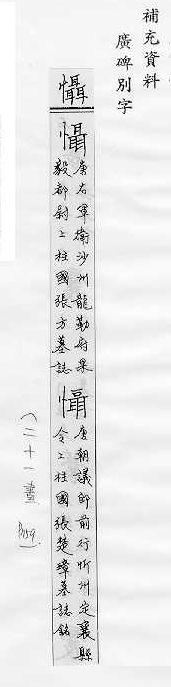 補充資料
廣碑別字
懾
懾
唐右軍衛沙州龍勒府果
毅都尉上柱國張方墓誌
懾
唐朝議郎前行忻州定襄縣
令上柱國張楚璋墓誌銘
(二十一畫